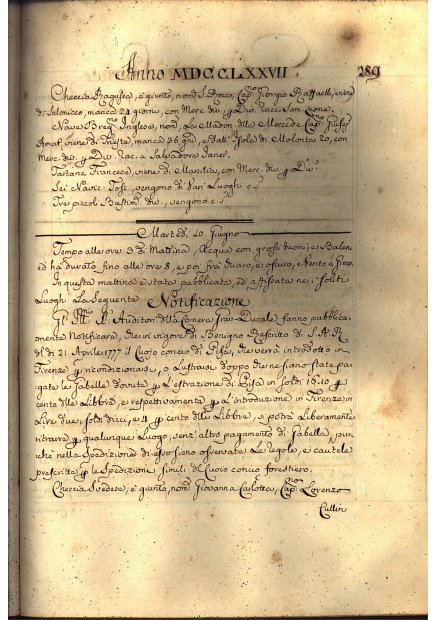 Anno MDCCLXXVII. 289
Checcia Ragusea, è giunto, nomᵗᵃ S. Rocco, Capⁿᵒ Giorgio Raffaelli, viene
di Salonicco, manca 24 giorni, con Merc. div. p Div. racc. Sam. Leone.
Nave Bregⁿᵒ Inglese, nomᵗᵃ La Madonª della Mercede Capⁿᵒ Gius.
Amat, viene di Trieste, manca 36 gni, e dall' Isola di 20, con
Merc. div. p Div. rac. a Salvadore Janer.
Tartana Francese, viene di Marsilia, con Merc. div. p Div.
Sei Navic. Tosc. vengono di Vari Luoghi c.s.
Tre piccoli Bastimᵗⁱ div. vengono c.s.
Martedì 10. Giugno
Tempo alle ore 3 di Mattina, Acqua con grossi tuoni, e Balen
ed ha durato fino alle ore 8, e poi frà e oscuro, Vento à
In questa mattina è stata pubblicata, ed affissata nei soliti
Luoghi La Seguente Notificazione
Gl' Illᵐⁱ SS. Auditori della Camera Gran-Ducale fanno pubblica-
mente Notificare, che in vigore di Benigno Rescritto di S.A.R.
del dì 21 Aprile 1777 il Cuoio concio di Pisa, che verrà introdotto in
Firenze p incondizionarsi, o lustrarsi doppo che ne siano state pa-
gate le Gabelle dovute p L'estrazione di Pisa in soldi 16.10 p
cento delle Libbre, e respettivamente p L'introduzione in Firenze in
Lire due, soldi dieci, e 4 p cento delle Libbre, si potrà Liberamente
ritrarre p qualunque Luogo, senz' altro pagamento di Gabella, pur-
chè nella Spedizione di esso siano osservate Le regole, e cautele
prescritte p le Spedizioni simili del Cuoio concio forestiero.
Checcia Svedese, è giunto, nomᵗᵃ Giovanna Carlotta, Capⁿᵒ Lorenzo
Cullin